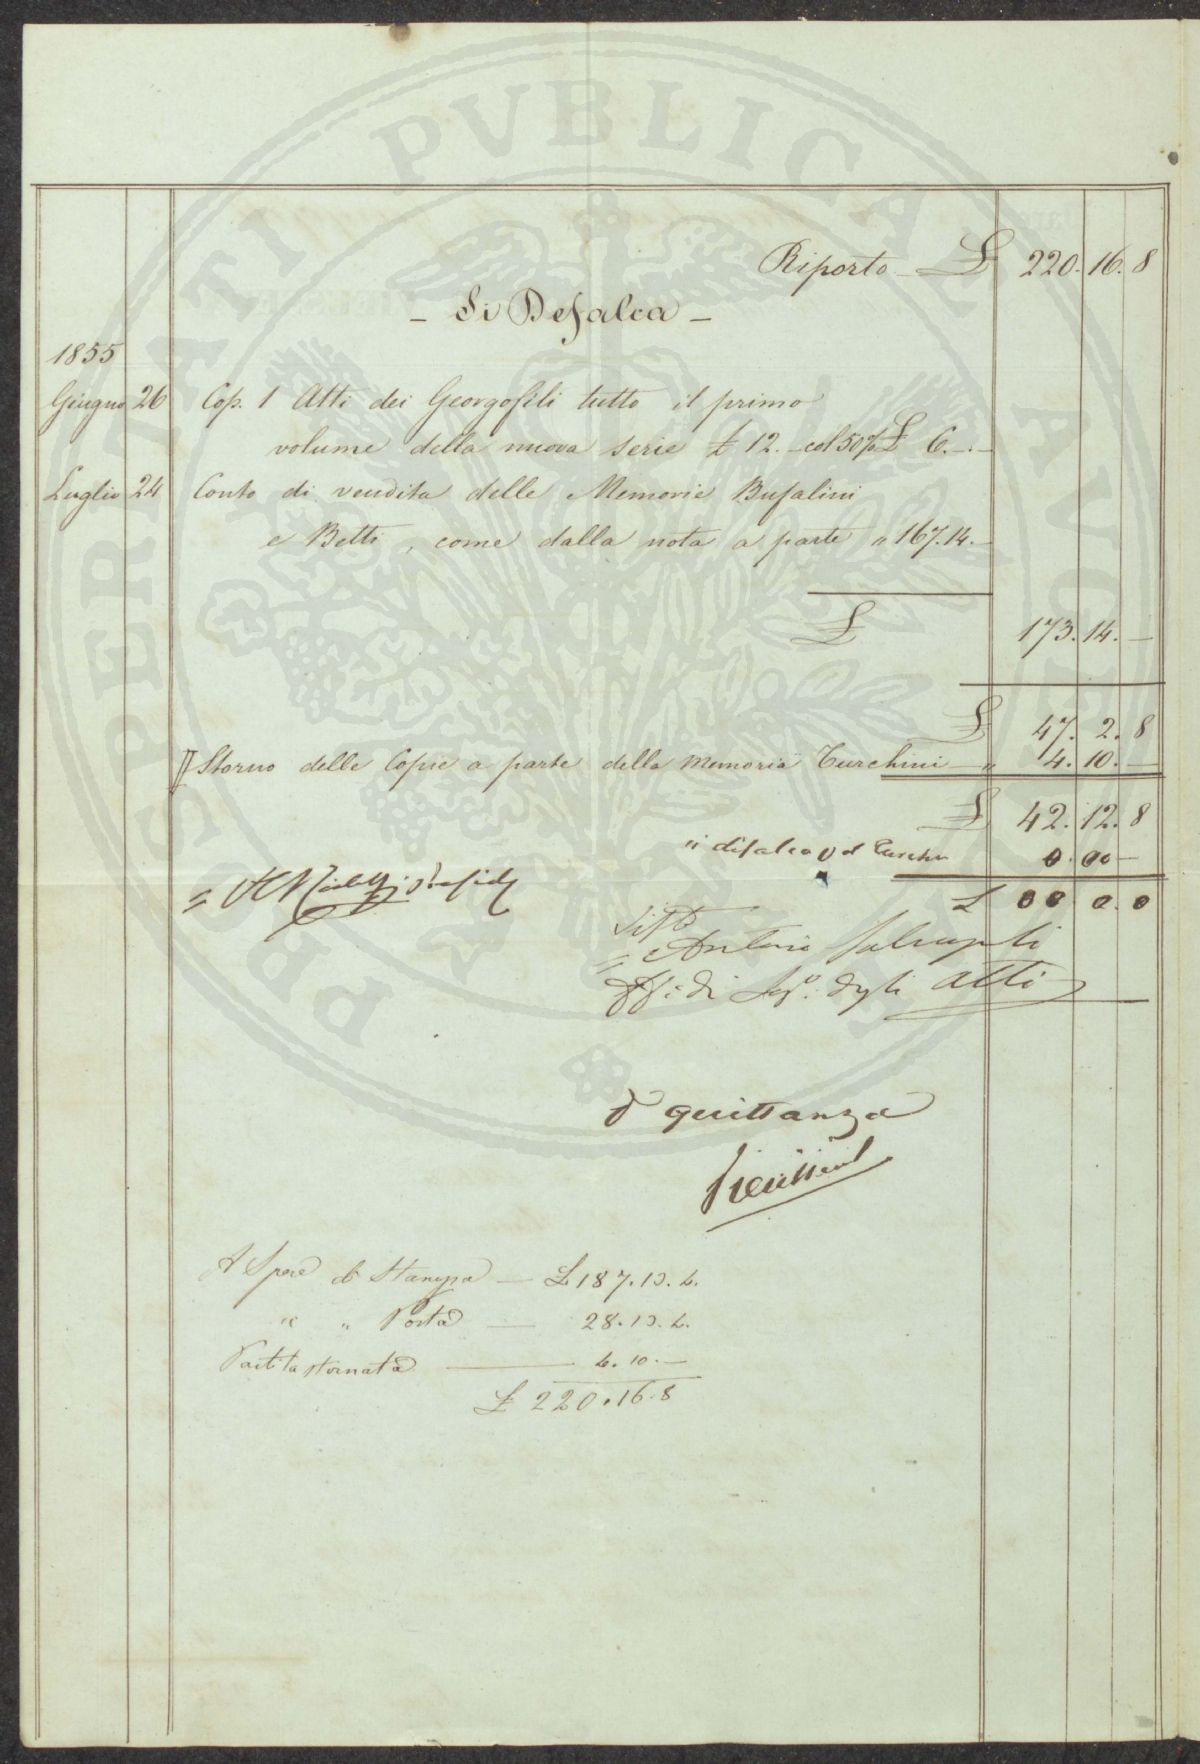 PROSPERITATI PVBLICAE AVGENDAE
Riporto £ 220. 16. 8
- Si Defalca -
1855
Giugno 26 Cop. 1 Atti dei Georgofili tutto il primo
volume della nuova serie £ 12. - col 50% £ 6. -. -
Luglio 24 Conto di vendita delle Memorie Bufalini
e Betti, come dalla nota a parte " 167. 14. -
£ 173. 14. -
£ 47. 2. 8
Storno delle Copie a parte della Memoria Turchini - " 4. 10. -
£ 42. 12. 8
" difalco
£ 00 0. 0
Visto
= Antonio Salvagnoli
Seg.o degli Atti
quittanza
Vieusseux
A Spese di Stampa — £ 187. 13. 4.
" " Posta — 28. 13. 4.
Partita stornata — 4. 10. —
£ 220. 16. 8